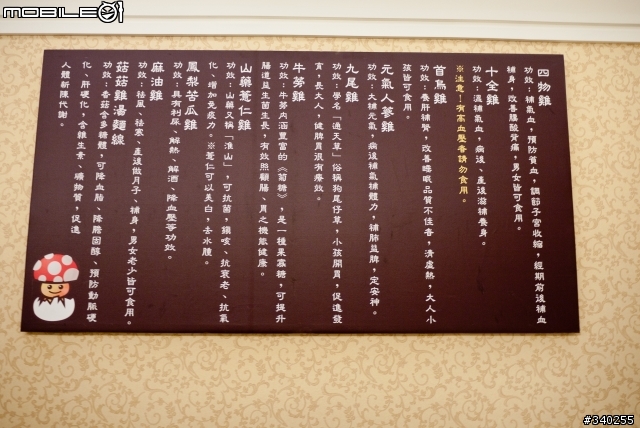 mobile01
四物雞
功效：補氣血，預防貧血，調節子宮收縮，經期前後補血
補身，改善腰酸背痛，男女皆可食用。
十全雞
功效：溫補氣血，病後、產後滋補養身。
※注意！有高血壓者請勿食用。
首烏雞
功效：養肝補腎，改善睡眠品質不佳者，清虛熱，大人小
孩皆可食用。
元氣人蔘雞
功效：大補元氣，病後補氣補體力，補肺益脾，定安神。
九尾雞
功效：學名「通天草」俗稱狗尾仔草，小孩開胃，促進發
育，長大人，健脾胃很有療效。
牛蒡雞
功效：牛蒡內涵豐富的《菊糖》，是一種果寡糖，可提升
腸道益生菌生長，有效照顧腸、胃之機能健康。
山藥薏仁雞
功效：山藥又稱「淮山」，可抗菌，鎮咳、抗衰老、抗氧
化、增加免疫力。※薏仁可以美白，去水腫。
鳳梨苦瓜雞
功效：具有利尿、解熱、解酒、降血壓等功效。
麻油雞
功效：祛風、祛寒、產後做月子、補身，男女老少皆可食用。
菇菇雞湯麵線
功效：香菇含多糖體，可降血脂、降膽固醇、預防動脈硬
化、肝硬化，含維生素、礦物質，促進
人體新陳代謝。
#340255